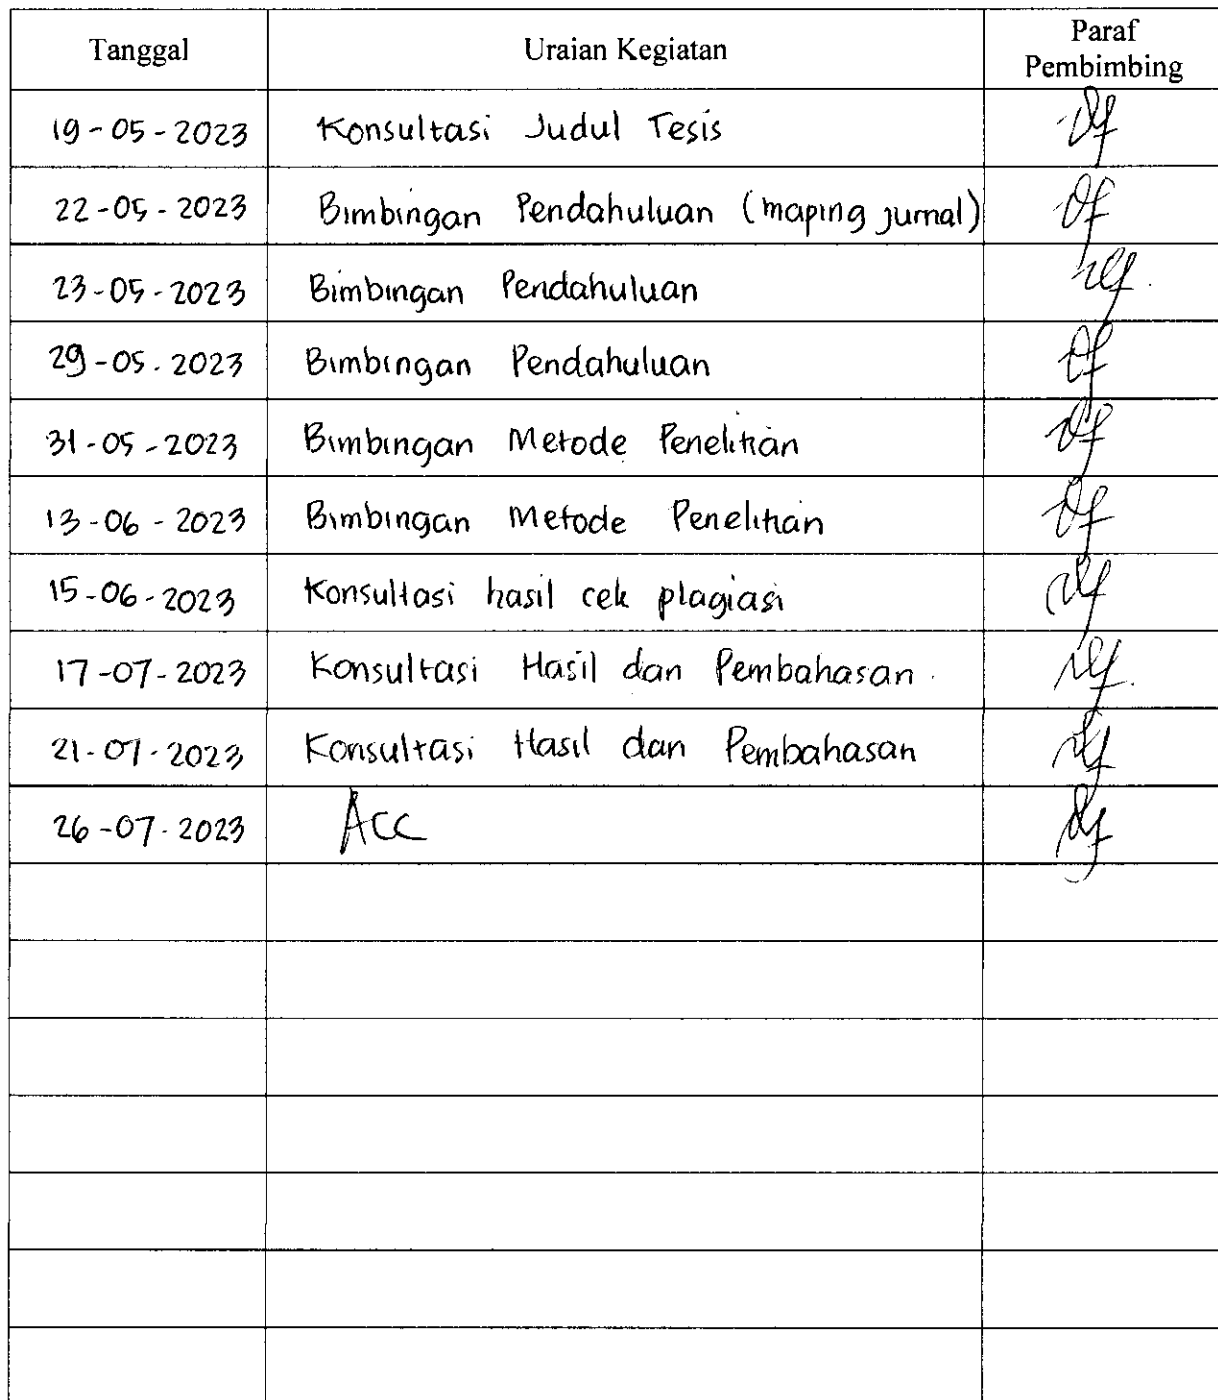 Tanggal Uraian Kegiatan Paraf Pembimbing
19-05-2023 Konsultasi Judul Tesis
22-05-2023 Bimbingan Pendahuluan (maping jurnal)
23-05-2023 Bimbingan Pendahuluan
29-05-2023 Bimbingan Pendahuluan
31-05-2023 Bimbingan Metode Penelitian
13-06-2023 Bimbingan Metode Penelitian
15-06-2023 Konsultasi hasil cek plagiasi
17-07-2023 Konsultasi Hasil dan Pembahasan.
21-07-2023 Konsultasi Hasil dan Pembahasan
26-07-2023 Acc